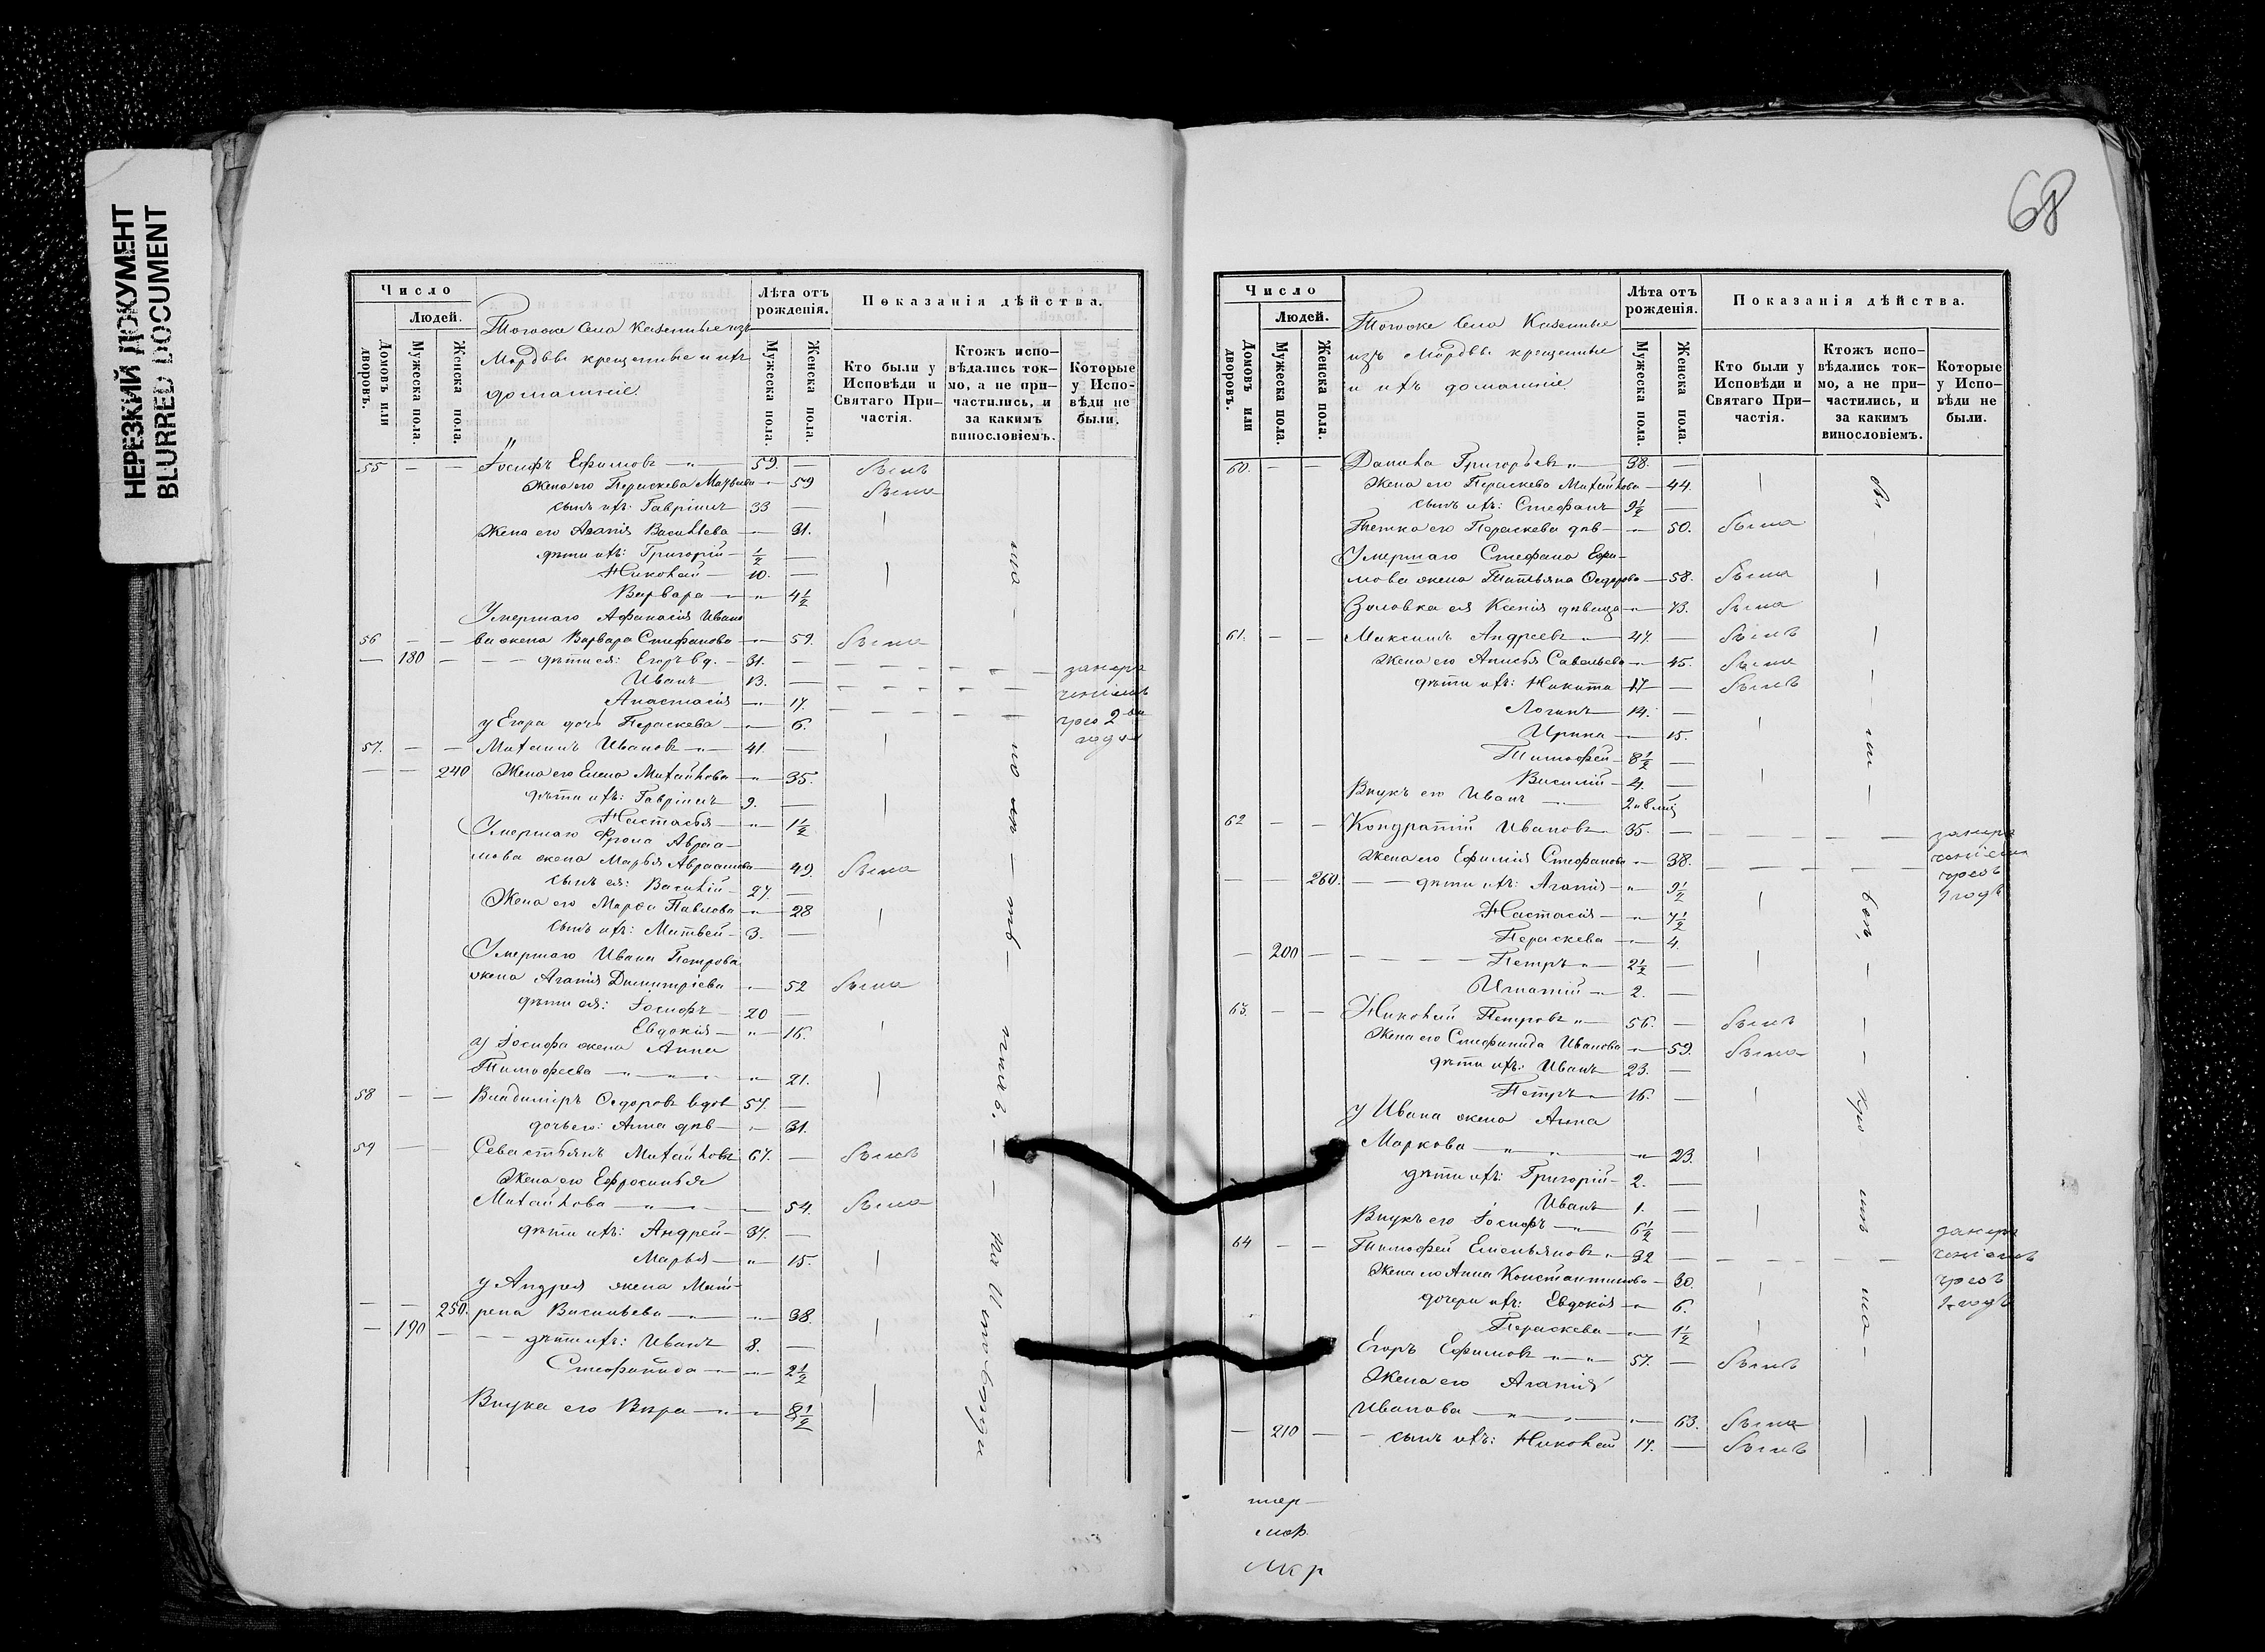 НЕРЕЗКИЙ ДОКУМЕНТ
BLURRED DOCUMENT
Число
Людей.
Домовъ или дворовъ.
Мужеска пола.
Женска пола.
Тогоже Села Казенные изъ
Мордвы крещенные и ихъ
домашніе.
Лѣта отъ рожденія.
Мужеска пола.
Женска пола.
Показанія дѣйства.
Кто были у Исповѣди и Святаго При-частія.
Ктожъ испо-вѣдались ток-мо, а не при-частились, и за какимъ винословіемъ.
Которые у Испо-вѣди не были.
55 — — Іосифъ Ефимовъ — 59. — былъ
Жена его Пераскева — 59 была
сынъ ихъ: Гавріилъ 33 —
Жена его Агапія Васильева — 31.
дѣти ихъ: Григорій — ½ —
Николай — 10. —
Варвара — „ — 4½
Умершаго Афанасія Ивано
56 — — ва жена Варвара Стефанова — 59. была
— 180 — — — дѣти ея: Егоръ вд. — 31. —
Иванъ — 13. —
Анастасія — 17.
у Егора дочь Пераскева — 6.
57. — — Михаилъ Ивановъ — „ — 41. —
— — 240 Жена его Елена Михайлова — 35.
дѣти ихъ: Гавріилъ 9. —
Настасья — „ — 1½
Умершаго Фрола Авраа-
мова жена Марья Авраамова — 49. была
сынъ ея: Василій — 27. —
Жена его Марфа Павлова — „ — 28
сынъ ихъ: Матвей — 3. —
Умершаго Ивана Петрова
жена Агапія Димитріева — 52 была
дѣти ея: Іосифъ — 20 —
Евдокія — „ — 16.
у Іосифа жена Анна
Тимофеева — „ — 21.
58 — — Владиміръ Ѳедоровъ вдов 57. —
дочь его: Анна дѣв — „ — 31.
59 — — Севастьянъ Михайловъ 67. — былъ
Жена его Ефросинья
Михайлова — „ — 54. была
дѣти ихъ: Андрей — 34. —
Марья — „ — 15.
у Андрея жена Мат-
— — 250. рена Васильева — „ — 38.
— 190 — — — дѣти ихъ: Иванъ 8. —
Стефанида — „ — 2½
Внука его Вѣра — „ — 8½
68
Число
Людей.
Домовъ или дворовъ.
Мужеска пола.
Женска пола.
Тогоже Села Казенные
изъ Мордвы крещенные
и ихъ домашніе
Лѣта отъ рожденія.
Мужеска пола.
Женска пола.
Показанія дѣйства.
Кто были у Исповѣди и Святаго При-частія.
Ктожъ испо-вѣдались ток-мо, а не при-частились, и за какимъ винословіемъ.
Которые у Испо-вѣди не были.
60. — — Данила Григорьевъ „ — 38. —
Жена его Пераскева Михайлова — 44.
сынъ ихъ: Стефанъ 9½ —
Тетка его Пераскева дѣв — „ — 50. была
Умершаго Стефана Ефи-
мова жена Татьяна Ѳедорова — 58. была
Золовка ея Ксенія дѣвица — „ — 73. была
61. — — Максимъ Андреевъ „ — 47. — былъ
Жена его Анисья Савельева — „ — 45. была
дѣти ихъ: Никита 17 — былъ
Логинъ — 14. —
Ирина — „ — 15.
Тимофей — 8½ —
Василій — 4. —
Внукъ его Иванъ —
62 — — Кондратій Ивановъ „ 35. —
Жена его Ефимія Стефанова — 38.
— — 260. — — дѣти ихъ: Агапія — „ — 9½
Настасія — „ — 7½
Пераскева — „ — 4.
— 200 — — — Петръ „ — 2½ —
Игнатій — „ — 2. —
63. — — Николай Петровъ „ — 56. — былъ
Жена его Стефанида Иванова — „ — 59. была
дѣти ихъ: Иванъ — 23. —
Петръ — 16. —
у Ивана жена Анна
Маркова — „ — „ — 23.
дѣти ихъ: Григорій — 2. —
Иванъ — 1. —
Внукъ его Іосифъ — „ — 6½ —
64 — — Тимофей Емельяновъ „ — 32 —
Жена его Анна Константинова — 30.
дочери ихъ: Евдокія — „ — 6.
Пераскева — „ — 1½
Егоръ Ефимовъ — „ — 57. — былъ
Жена его Агапія
Иванова — „ — 63. была
— 210 — — сынъ ихъ: Николай 17. — былъ